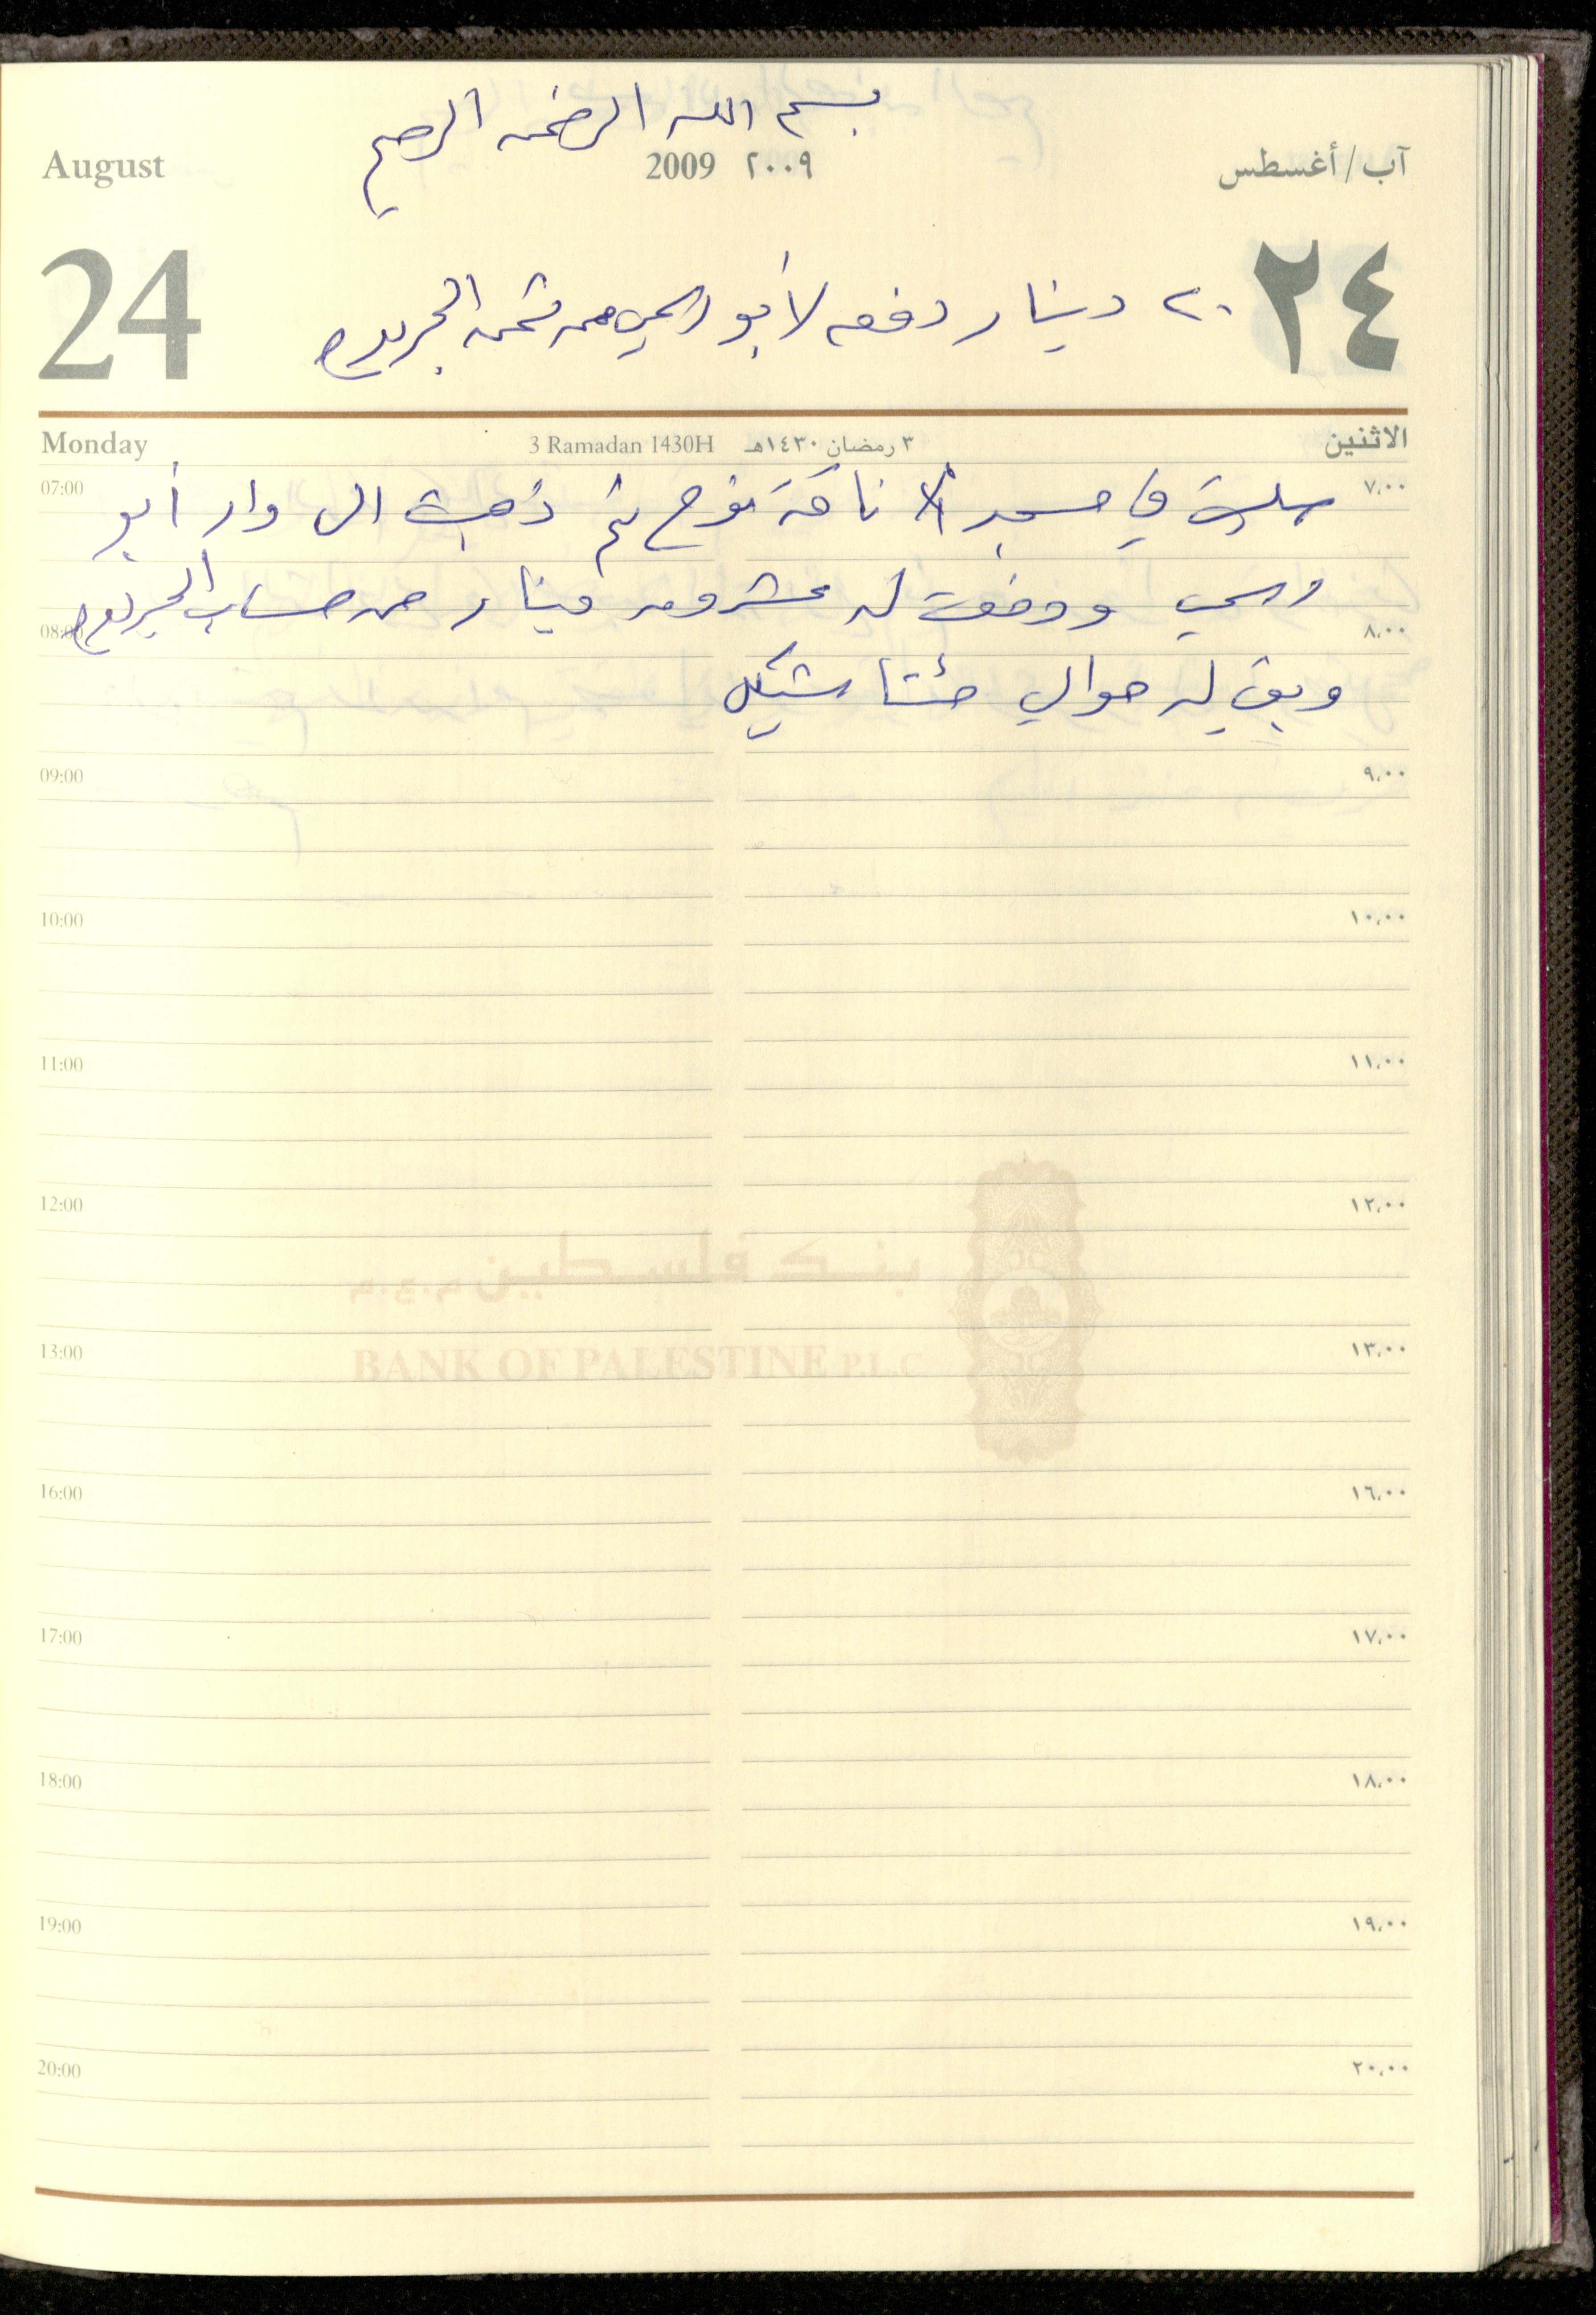 بسم الله الرحمن الرحيم
August 2009 ٢٠٠٩ آب/أغسطس
24 ٢٤
٢٠ دينار دفعه لأبو راسي من ثمن الجريده
Monday 3 Ramadan 1430H ٣ رمضان ١٤٣٠هـ الاثنين
07:00 ٧,٠٠
صليت في مسجد ناقة نوح ثم ذهبت الى دار أبو
راسي ودفعت له عشرون دينار من حساب الجريده
08:00 ٨,٠٠
وبقي له حوالي مئتا شيكل
09:00 ٩,٠٠
10:00 ١٠,٠٠
11:00 ١١,٠٠
12:00 ١٢,٠٠
بنك فلسطين م.ع.م
13:00 ١٣,٠٠
BANK OF PALESTINE P.L.C
16:00 ١٦,٠٠
17:00 ١٧,٠٠
18:00 ١٨,٠٠
19:00 ١٩,٠٠
20:00 ٢٠,٠٠